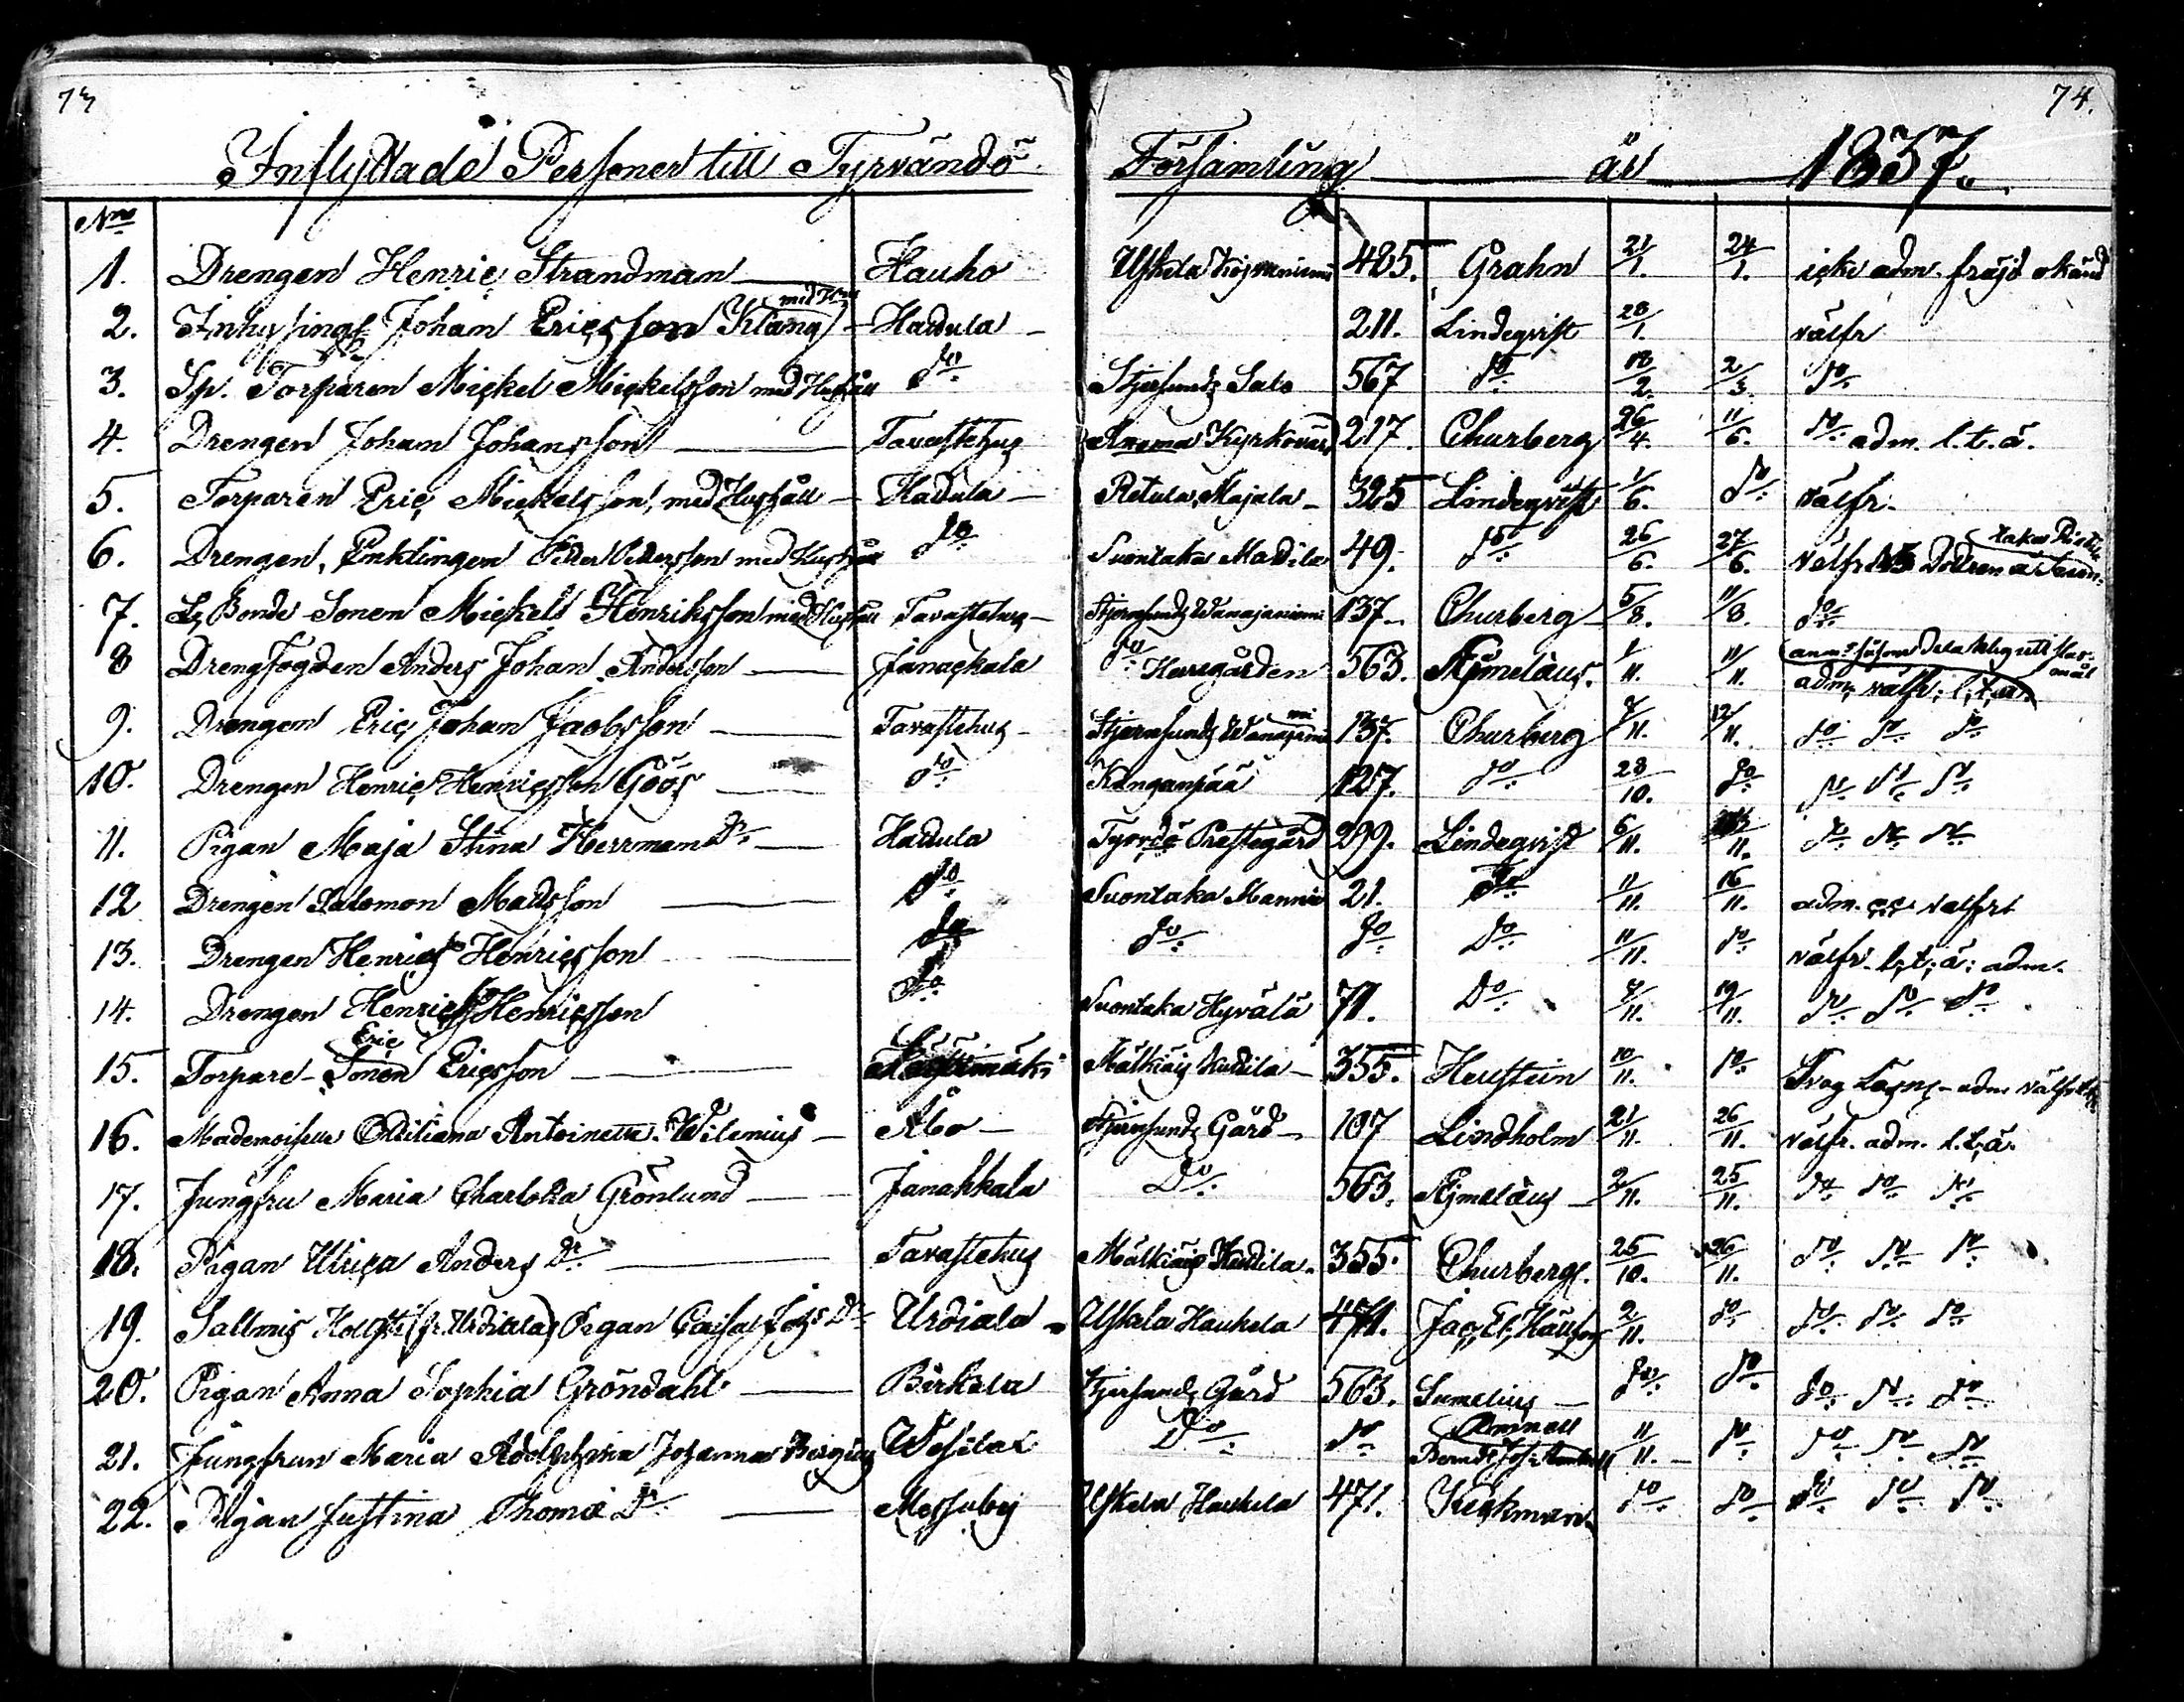 73
74.
Inflyttade Personer till Tyrvändö Församling år 1837.
Nro
1. Drengen Henric Strandman Hauho Uskila 485. Grahn 21/1. 24/1. icke adm. frejd okänd
2. Inhysinge Johan Ericsson Klang med Hattula 211. Lindeqvist 28/1. välfr
3. Sp. Torparen Mickel Mickelsson med Hushåll do Stjersunds Salo 567 do 18/2. 2/3. do
4. Drengen Johan Johansson Tavastehus Kyrkovärd 217. Churberg 26/4. 11/6. do adm. l.t.ä.
5. Torparen Eric Mickelsson, med Hushåll Hattula Retula Majala 325 Lindeqvist 1/6. do välfr.
6. Drengen, Enklingen Petter Pettersson med Hushåll do Suontaka Mattila 49. do 26/6. 27/6. välfr
7. Bonde Sonen Mickel Henriksson med Hushåll Tavastehus Stjernsunds Wanajaniemi 137. Churberg 5/8. 11/8. do
8 Drengfogden Anders Johan Andersson Janackala do Herregården 563. Äjmelæus. 1/11. 11/11. adm. välfr. l.t.ä.
9. Drengen Eric Johan Jacobsson Tavastehus Stjernsunds Wanajaniemi 137. Churberg 7/11. 12/11. do do do
10. Drengen Henric Henricsson Göös do Kanganpää 127. do 28/10. do do do do
11. Pigan Maja Stina Herrmans Dr Hattula Tyrvdö Prestegård 299. Lindeqvist 6/11. do do do
12 Drengen Salomon Mattsson do Suontaka Mannis 21. do 11/11. 16/11. adm. välfr
13. Drengen Henric Henricsson do do do Do 11/11. do välfr. l.t.ä. adm.
14. Drengen Henric Henricsson do Suontaka Hyvälä 71. Do 7/11. 19/11. do do do
15. Torpare-Sonen Eric Ericsson Mälkiäis Kudila 355. Heustein 10/11. do Svag Läsning adm välfr
16. Mademoiselle Ottiliana Antoinetta Wilenius Åbo Stjernsunds Gård 107 Lindholm 21/11. 26/11. välfr. adm. l.t.ä.
17. Jungfru Maria Charlotta Grönlund Janakkala Do 563. Äjmelæus 2/11. 25/11. do do do
18. Pigan Ulrica Anders Dr Tavastehus Mälkiäis Kudila 355. Churberg. 25/10. 26/11. do do do
19. (fr. Urdiala) Pigan Caisa Johs Dr Urdiala Uskela Haukela 471. Jac. El. 2/11. do do do do
20. Pigan Anna Sophia Gröndahl Birkala Stjersunds Gård 563. Sumelius do do do do do
21. Jungfrun Maria Adolphina Johanna Bergius Wesilax Do do 11/11. do do do do
22. Pigan Justina Thomæ Dr Messuby Uskela Haukela 471. Kiekman do do do do do